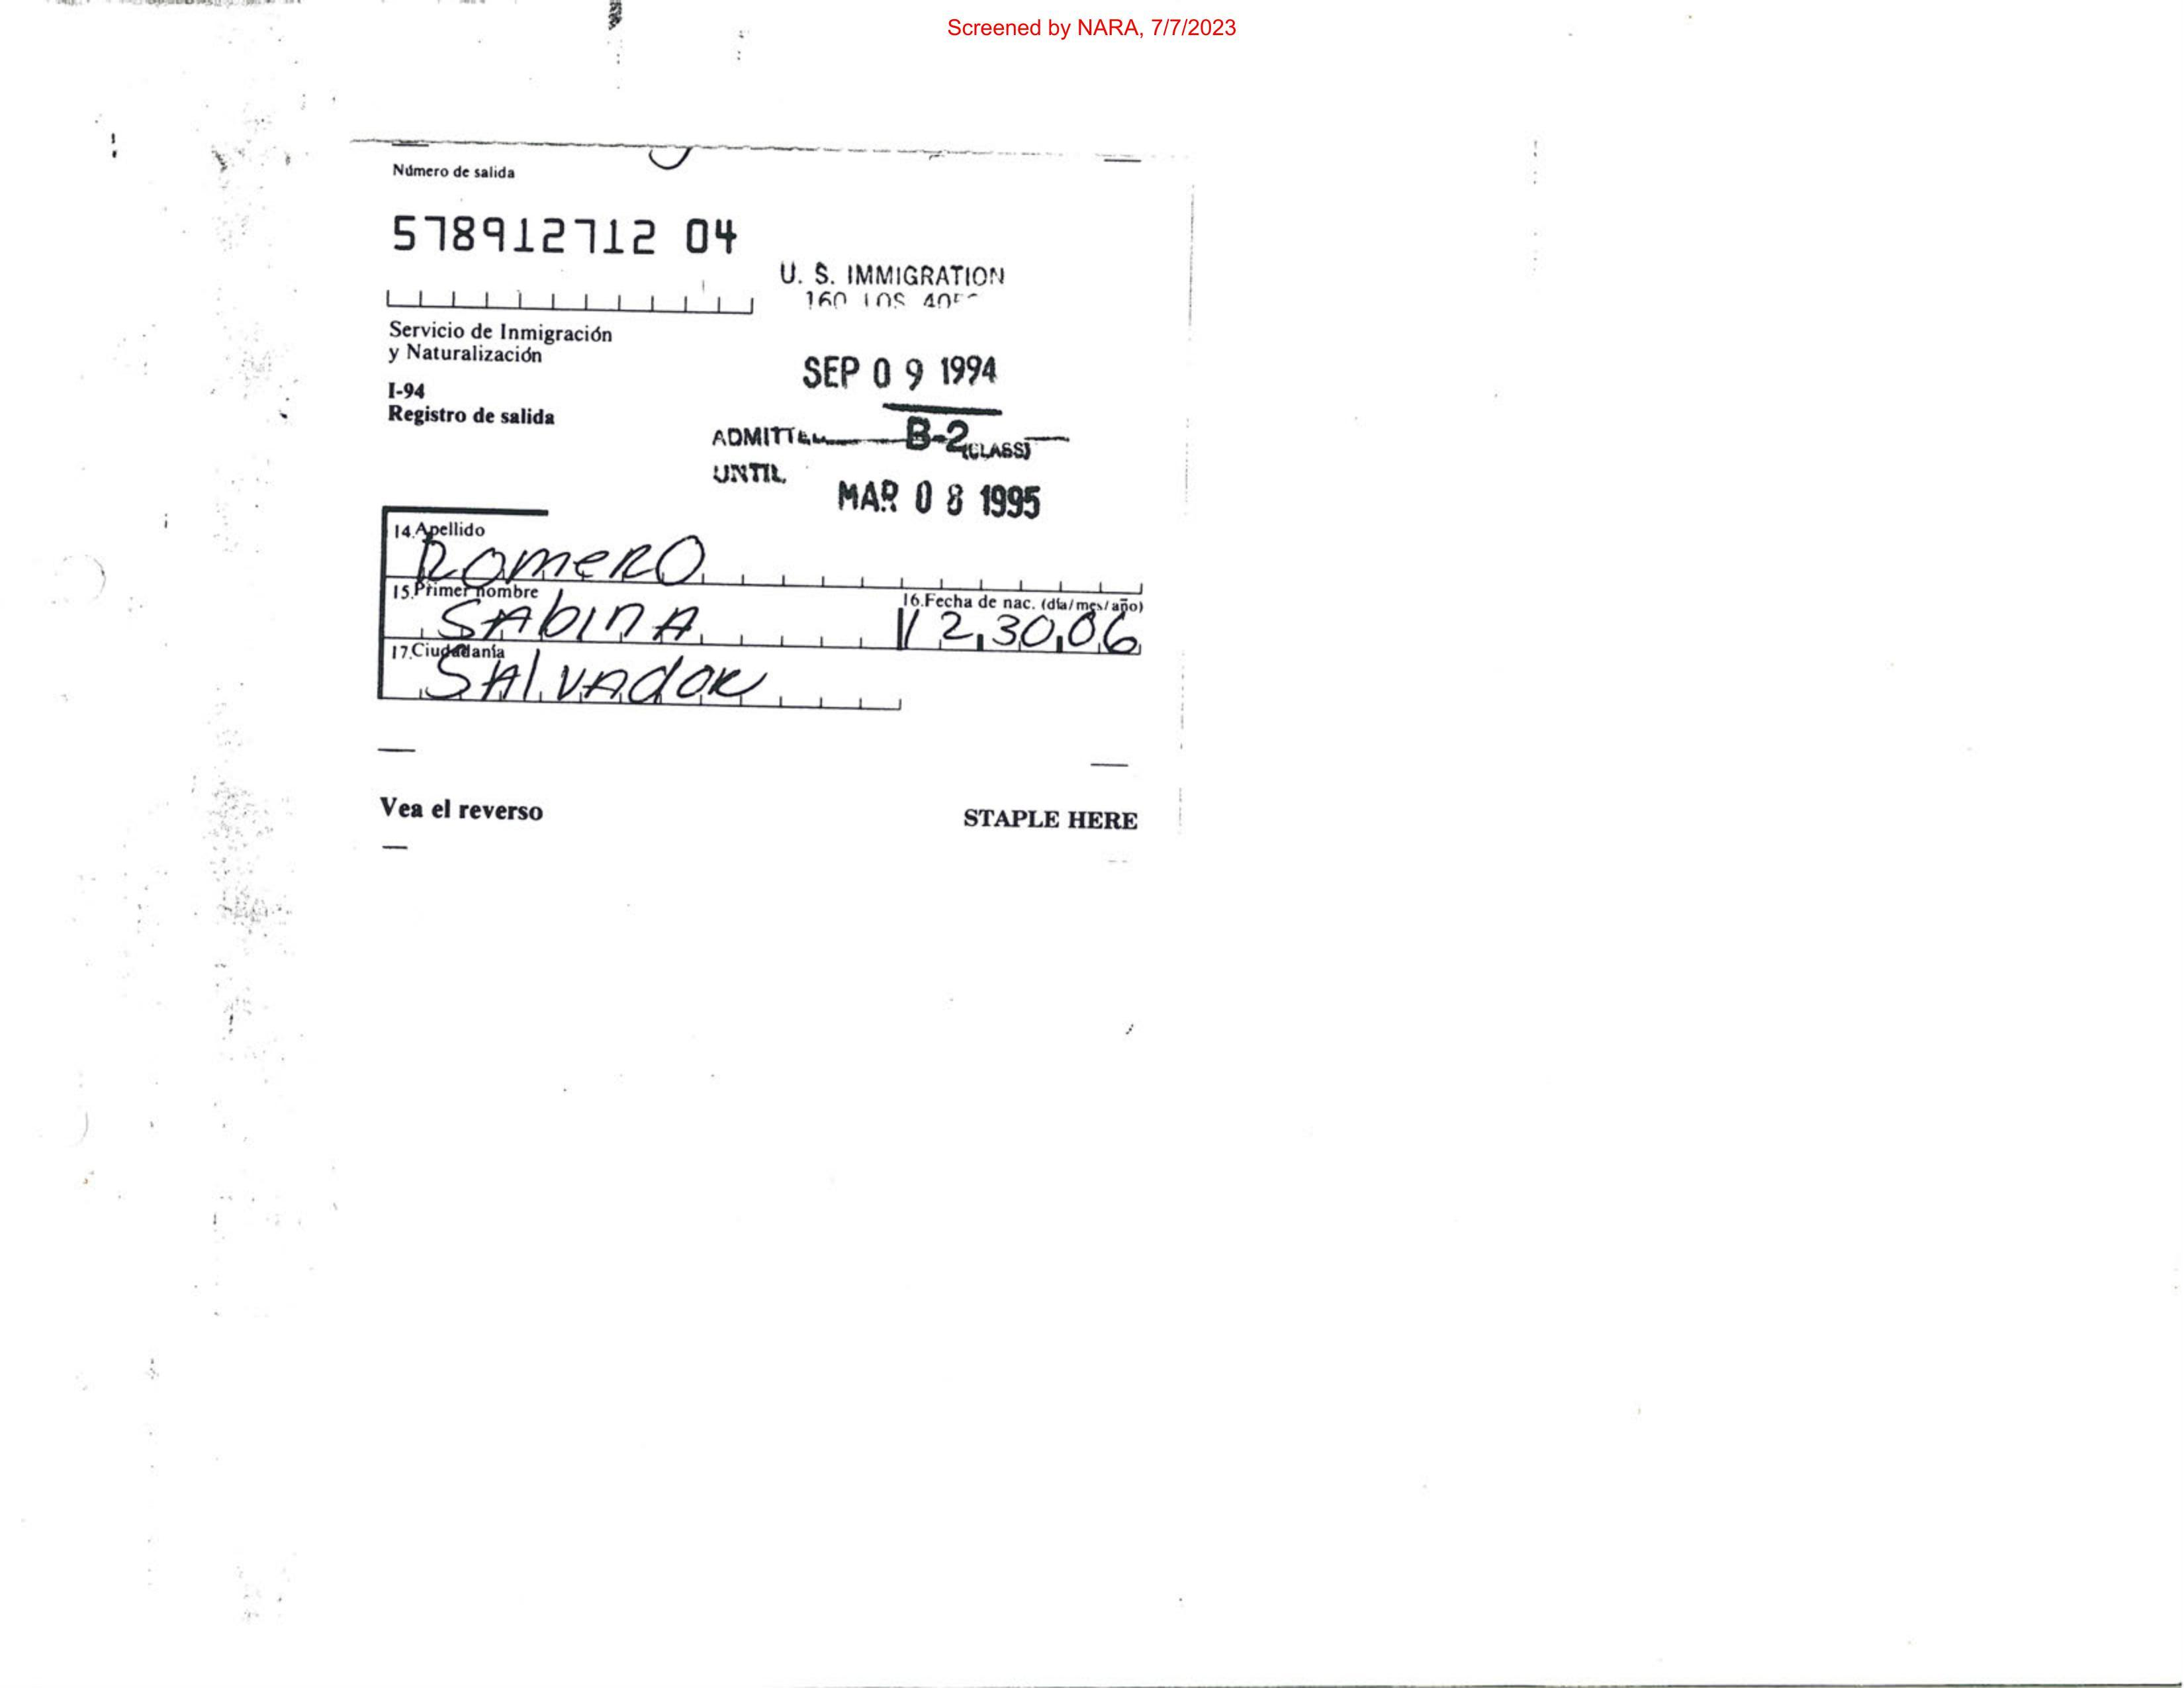 Screened by NARA, 7/7/2023
Número de salida
578912712 04
U. S. IMMIGRATION
160 LOS
Servicio de Inmigración
y Naturalización
SEP 09 1994
I-94
Registro de salida
ADMITTED B-2 (CLASS)
UNTIL
MAR 08 1995
14.Apellido
ROMERO
15.Primer nombre
SABINA
16.Fecha de nac. (día/mes/año)
12,30,06
17.Ciudadanía
SALVADOR
Vea el reverso
STAPLE HERE